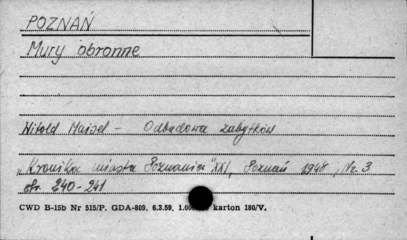 POZNAŃ
Mury obronne
Witold Maisel - Odbudowa zabytków
„Kronika miasta Poznania" XXI, Poznań 1948, Nr. 3
str. 240-241
CWD B-15b Nr 515/P. GDA-809, 6.3.59, 1.00 karton 180/V.